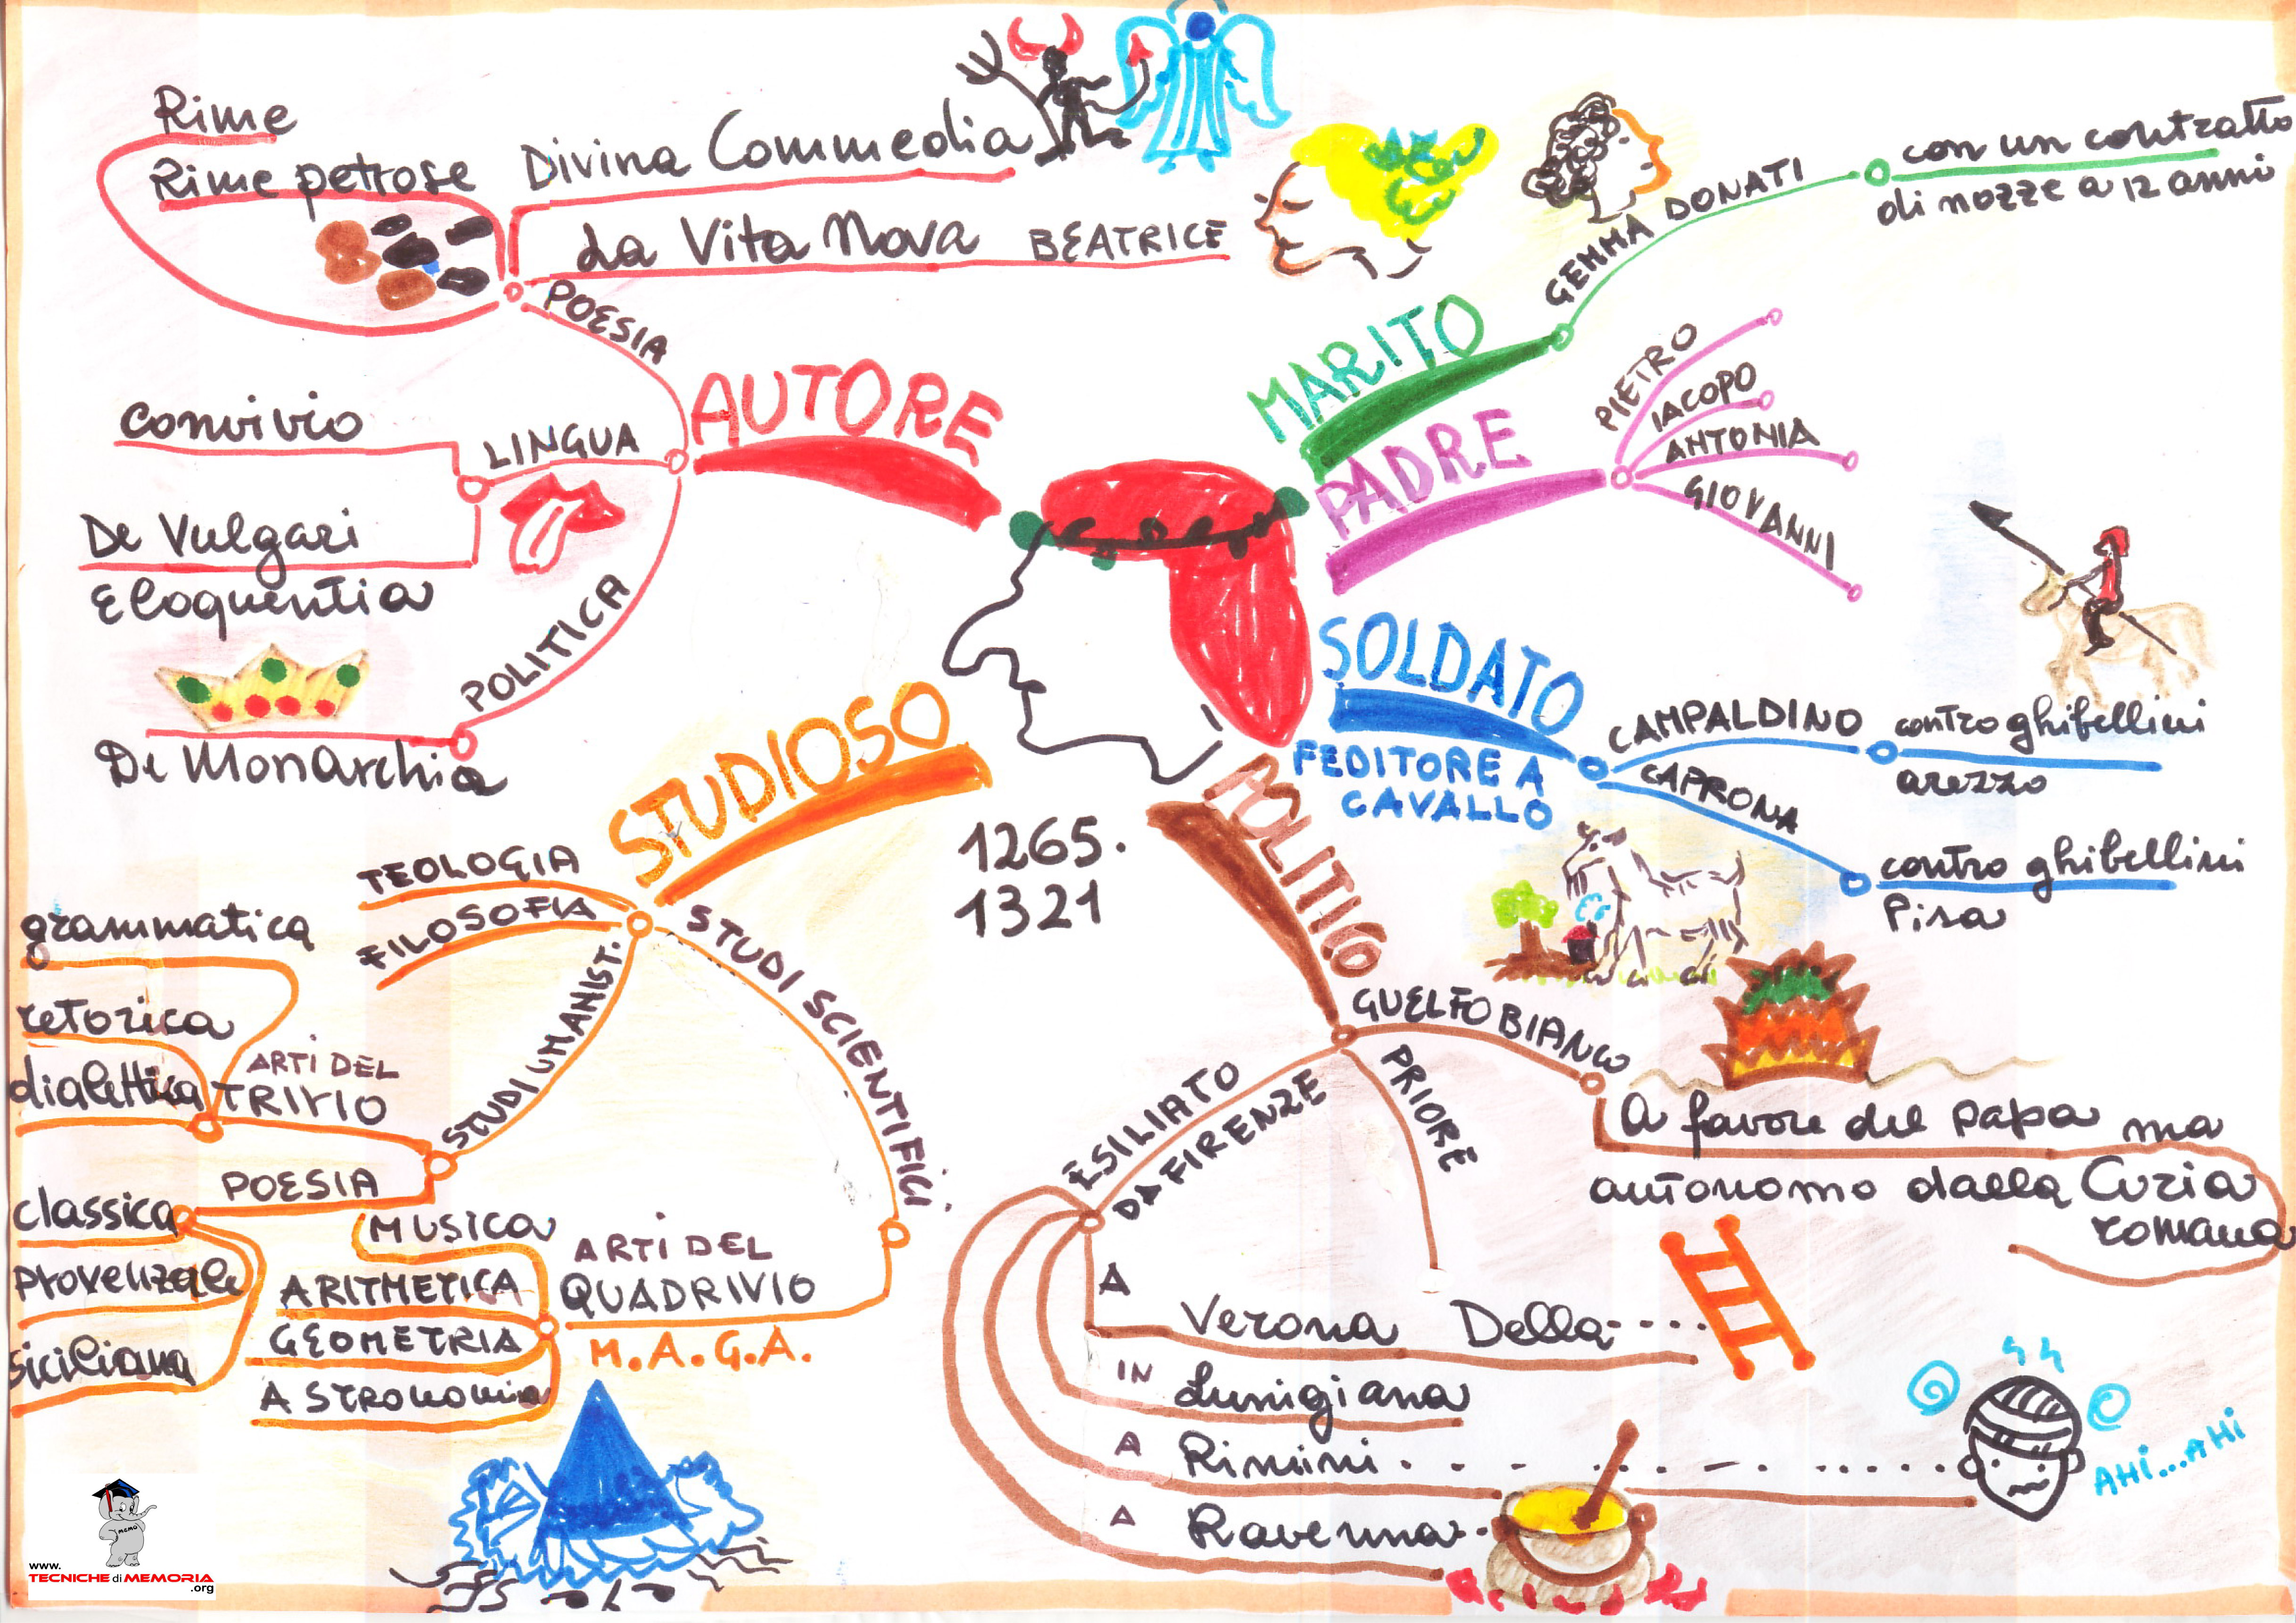 Rime
Rime petrose
Divina Commedia
La Vita Nova BEATRICE
POESIA
AUTORE
Convivio
LINGUA
De Vulgari
Eloquentia
POLITICA
De Monarchia
MARITO
GEMMA DONATI
con un contratto
di nozze a 12 anni
PADRE
PIETRO
IACOPO
ANTONIA
GIOVANNI
SOLDATO
FEDITORE A
CAVALLO
CAMPALDINO
contro ghibellini
arezzo
CAPRONA
contro ghibellini
Pisa
1265.
1321
STUDIOSO
TEOLOGIA
FILOSOFIA
STUDI UMANIST.
grammatica
retorica
dialettica
ARTI DEL
TRIVIO
POESIA
classica
provenzale
siciliana
STUDI SCIENTIFICI.
ARTI DEL
QUADRIVIO
M.A.G.A.
MUSICA
ARITMETICA
GEOMETRIA
ASTRONOMIA
POLITICO
GUELFO BIANCO
A favore del papa ma
autonomo dalla Curia
romana
PRIORE
ESILIATO
DA FIRENZE
A Verona Della....
IN Lunigiana
A Rimini
A Ravenna
AHI...AHI
MEMO
www.
TECNICHE di MEMORIA
.org